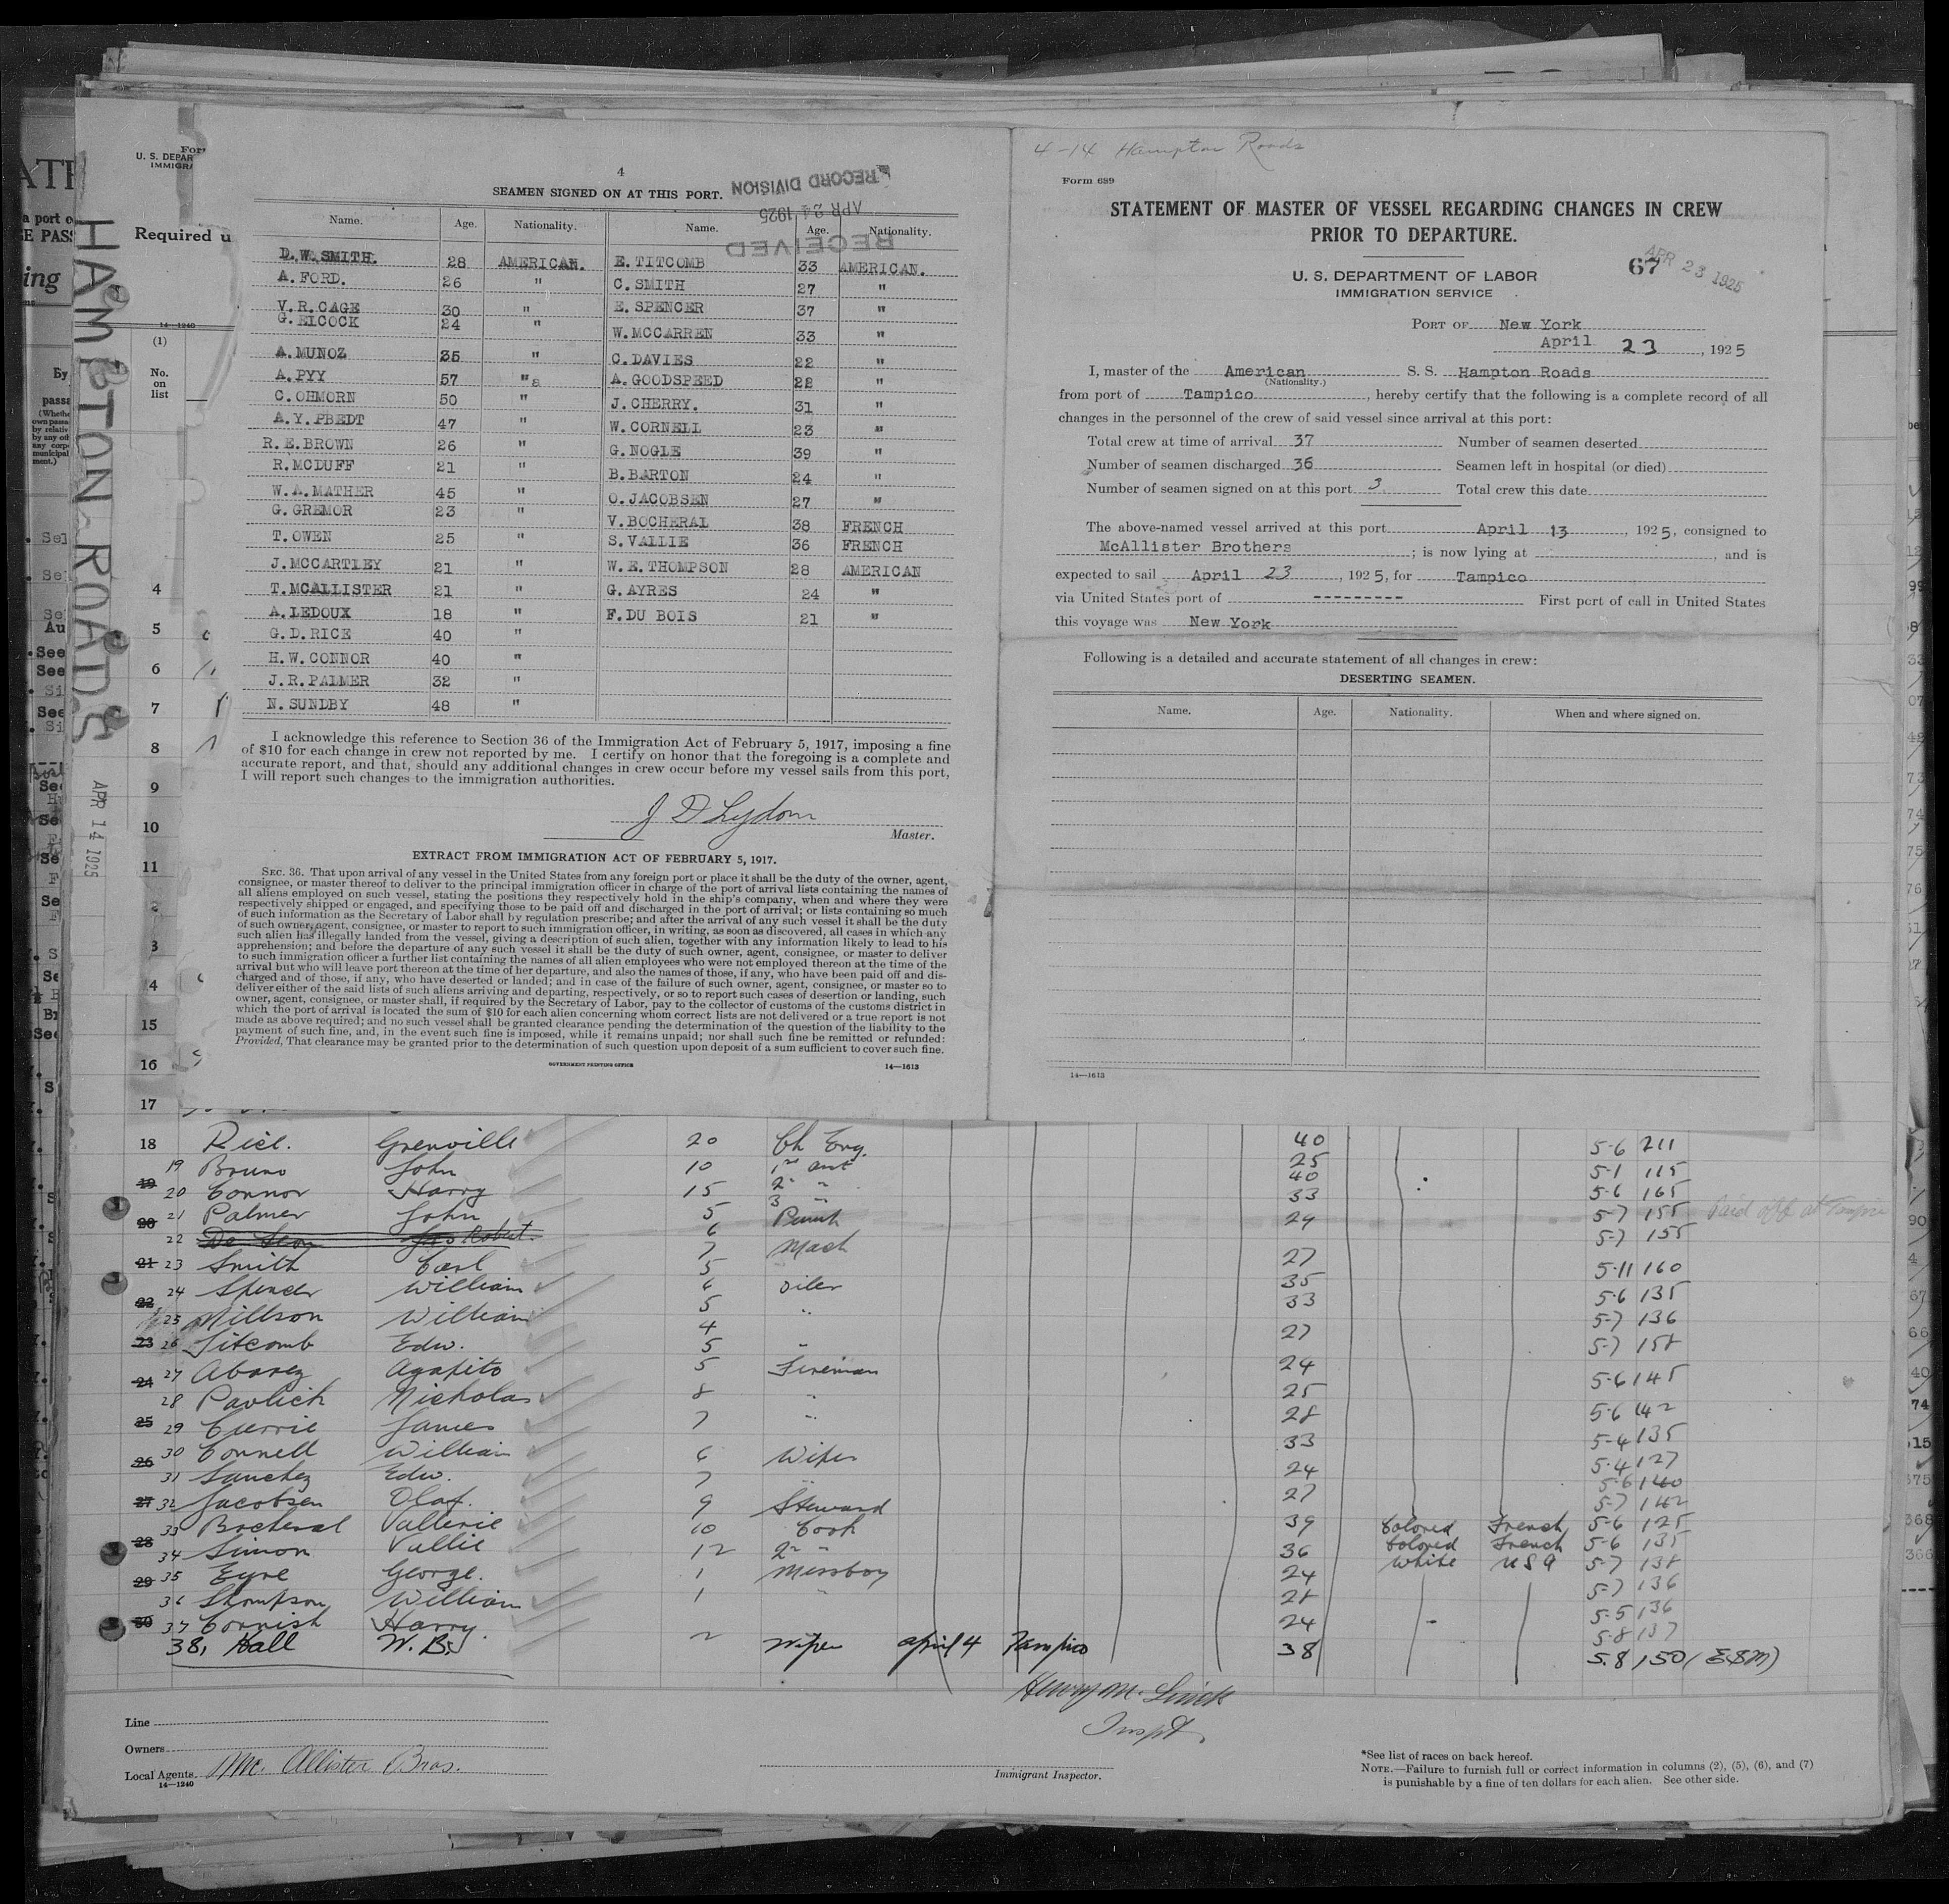 HAMPTON ROADS
APR 14 1925
U. S. DEPAR
IMMIGRA
Required u
14—1240
(1)
No.
on
list
4
SEAMEN SIGNED ON AT THIS PORT.
RECORD DIVISION
APR 24 1925
RECEIVED
Name. Age. Nationality. Name. Age. Nationality.
D.W.SMITH. 28 AMERICAN. E.TITCOMB 33 AMERICAN.
A.FORD. 26 " C.SMITH 27 "
V.R.CAGE 30 " E.SPENCER 37 "
G.ELCOCK 24 " W.MCCARREN 33 "
A.MUNOZ 35 " C.DAVIES 22 "
A.PYY 57 " A.GOODSPEED 22 "
C.OHMORN 50 " J.CHERRY. 31 "
A.Y.PBEDT 47 " W.CORNELL 23 "
R.E.BROWN 26 " G.NOGLE 39 "
R.MCDUFF 21 " B.BARTON 24 "
W.A.MATHER 45 " O.JACOBSEN 27 "
G.GREMOR 23 " V.BOCHERAL 38 FRENCH
T.OWEN 25 " S.VALLIE 36 FRENCH
J.MCCARTLEY 21 " W.E.THOMPSON 28 AMERICAN
T.MCALLISTER 21 " G.AYRES 24 "
A.LEDOUX 18 " F.DU BOIS 21 "
G.D.RICE 40 "
H.W.CONNOR 40 "
J.R.PALMER 32 "
N.SUNDBY 48 "
I acknowledge this reference to Section 36 of the Immigration Act of February 5, 1917, imposing a fine
of $10 for each change in crew not reported by me. I certify on honor that the foregoing is a complete and
accurate report, and that, should any additional changes in crew occur before my vessel sails from this port,
I will report such changes to the immigration authorities.
J D Lydom
Master.
EXTRACT FROM IMMIGRATION ACT OF FEBRUARY 5, 1917.
SEC. 36. That upon arrival of any vessel in the United States from any foreign port or place it shall be the duty of the owner, agent,
consignee, or master thereof to deliver to the principal immigration officer in charge of the port of arrival lists containing the names of
all aliens employed on such vessel, stating the positions they respectively hold in the ship's company, when and where they were
respectively shipped or engaged, and specifying those to be paid off and discharged in the port of arrival; or lists containing so much
of such information as the Secretary of Labor shall by regulation prescribe; and after the arrival of any such vessel it shall be the duty
of such owner, agent, consignee, or master to report to such immigration officer, in writing, as soon as discovered, all cases in which any
such alien has illegally landed from the vessel, giving a description of such alien, together with any information likely to lead to his
apprehension; and before the departure of any such vessel it shall be the duty of such owner, agent, consignee, or master to deliver
to such immigration officer a further list containing the names of all alien employees who were not employed thereon at the time of the
arrival but who will leave port thereon at the time of her departure, and also the names of those, if any, who have been paid off and dis-
charged and of those, if any, who have deserted or landed; and in case of the failure of such owner, agent, consignee, or master so to
deliver either of the said lists of such aliens arriving and departing, respectively, or so to report such cases of desertion or landing, such
owner, agent, consignee, or master shall, if required by the Secretary of Labor, pay to the collector of customs of the customs district in
which the port of arrival is located the sum of $10 for each alien concerning whom correct lists are not delivered or a true report is not
made as above required; and no such vessel shall be granted clearance pending the determination of the question of the liability to the
payment of such fine, and, in the event such fine is imposed, while it remains unpaid; nor shall such fine be remitted or refunded:
Provided, That clearance may be granted prior to the determination of such question upon deposit of a sum sufficient to cover such fine.
GOVERNMENT PRINTING OFFICE 14—1613
4-14 Hampton Roads
Form 689
STATEMENT OF MASTER OF VESSEL REGARDING CHANGES IN CREW
PRIOR TO DEPARTURE.
67 APR 23 1925
U. S. DEPARTMENT OF LABOR
IMMIGRATION SERVICE
PORT OF New York
April 23, 1925
I, master of the American S. S. Hampton Roads
(Nationality.)
from port of Tampico, hereby certify that the following is a complete record of all
changes in the personnel of the crew of said vessel since arrival at this port:
Total crew at time of arrival 37 Number of seamen deserted
Number of seamen discharged 36 Seamen left in hospital (or died)
Number of seamen signed on at this port 3 Total crew this date
The above-named vessel arrived at this port April 13, 1925, consigned to
McAllister Brothers; is now lying at , and is
expected to sail April 23, 1925, for Tampico
via United States port of --------- First port of call in United States
this voyage was New York
Following is a detailed and accurate statement of all changes in crew:
DESERTING SEAMEN.
Name. Age. Nationality. When and where signed on.
14—1613
4
5
6
7
8
9
10
11
2
3
4
15
16
17
18 Rice. Grenville 20 Ch Eng. 40 5-6 211
19 Bruno John 10 1st ast 25 5-1 115
20 Connor Harry 15 2 " 40 5-6 165
21 Palmer John 5 3 " 33 5-7 155 Paid off at Tampico
22 De Leon Robert. 6 Pump 29 5-7 155
23 Smith Carl 7 Mach 27 5-11 160
24 Spencer William 5 oiler 35 5-6 135
25 Millson William 6 " 33 5-7 136
26 Titcomb Edw. 4 " 27 5-7 158
27 Abarez Agapito 5 Fireman 24 5-6 145
28 Pavlich Nicholas 8 " 25 5-6 142
29 Currie James 7 " 28 5-4 135
30 Connell William 6 Wiper 33 5-4 127
31 Sanchez Edw. 7 " 24 5-6 140
32 Jacobsen Olaf. 9 Steward 27 5-7 142
33 Bocheral Vallerie 10 Cook 39 Colored French 5-6 125
34 Simon Vallie 12 2" " 36 Colored French 5-6 135
35 Eyre George. 1 Messboy 24 White USA 5-7 138
36 Thompson William 1 " 28 5-7 136
37 Cornish Harry. 2 24 5-5 136
5-8 137
38, Hall W. B. Wiper april 4 Tampico 38 5.8 150 (E.S.M)
Henry M. Linick
Inspt.
Line
Owners
Local Agents Mc. Allister Bros.
14—1240
Immigrant Inspector.
*See list of races on back hereof.
NOTE.—Failure to furnish full or correct information in columns (2), (5), (6), and (7)
is punishable by a fine of ten dollars for each alien. See other side.